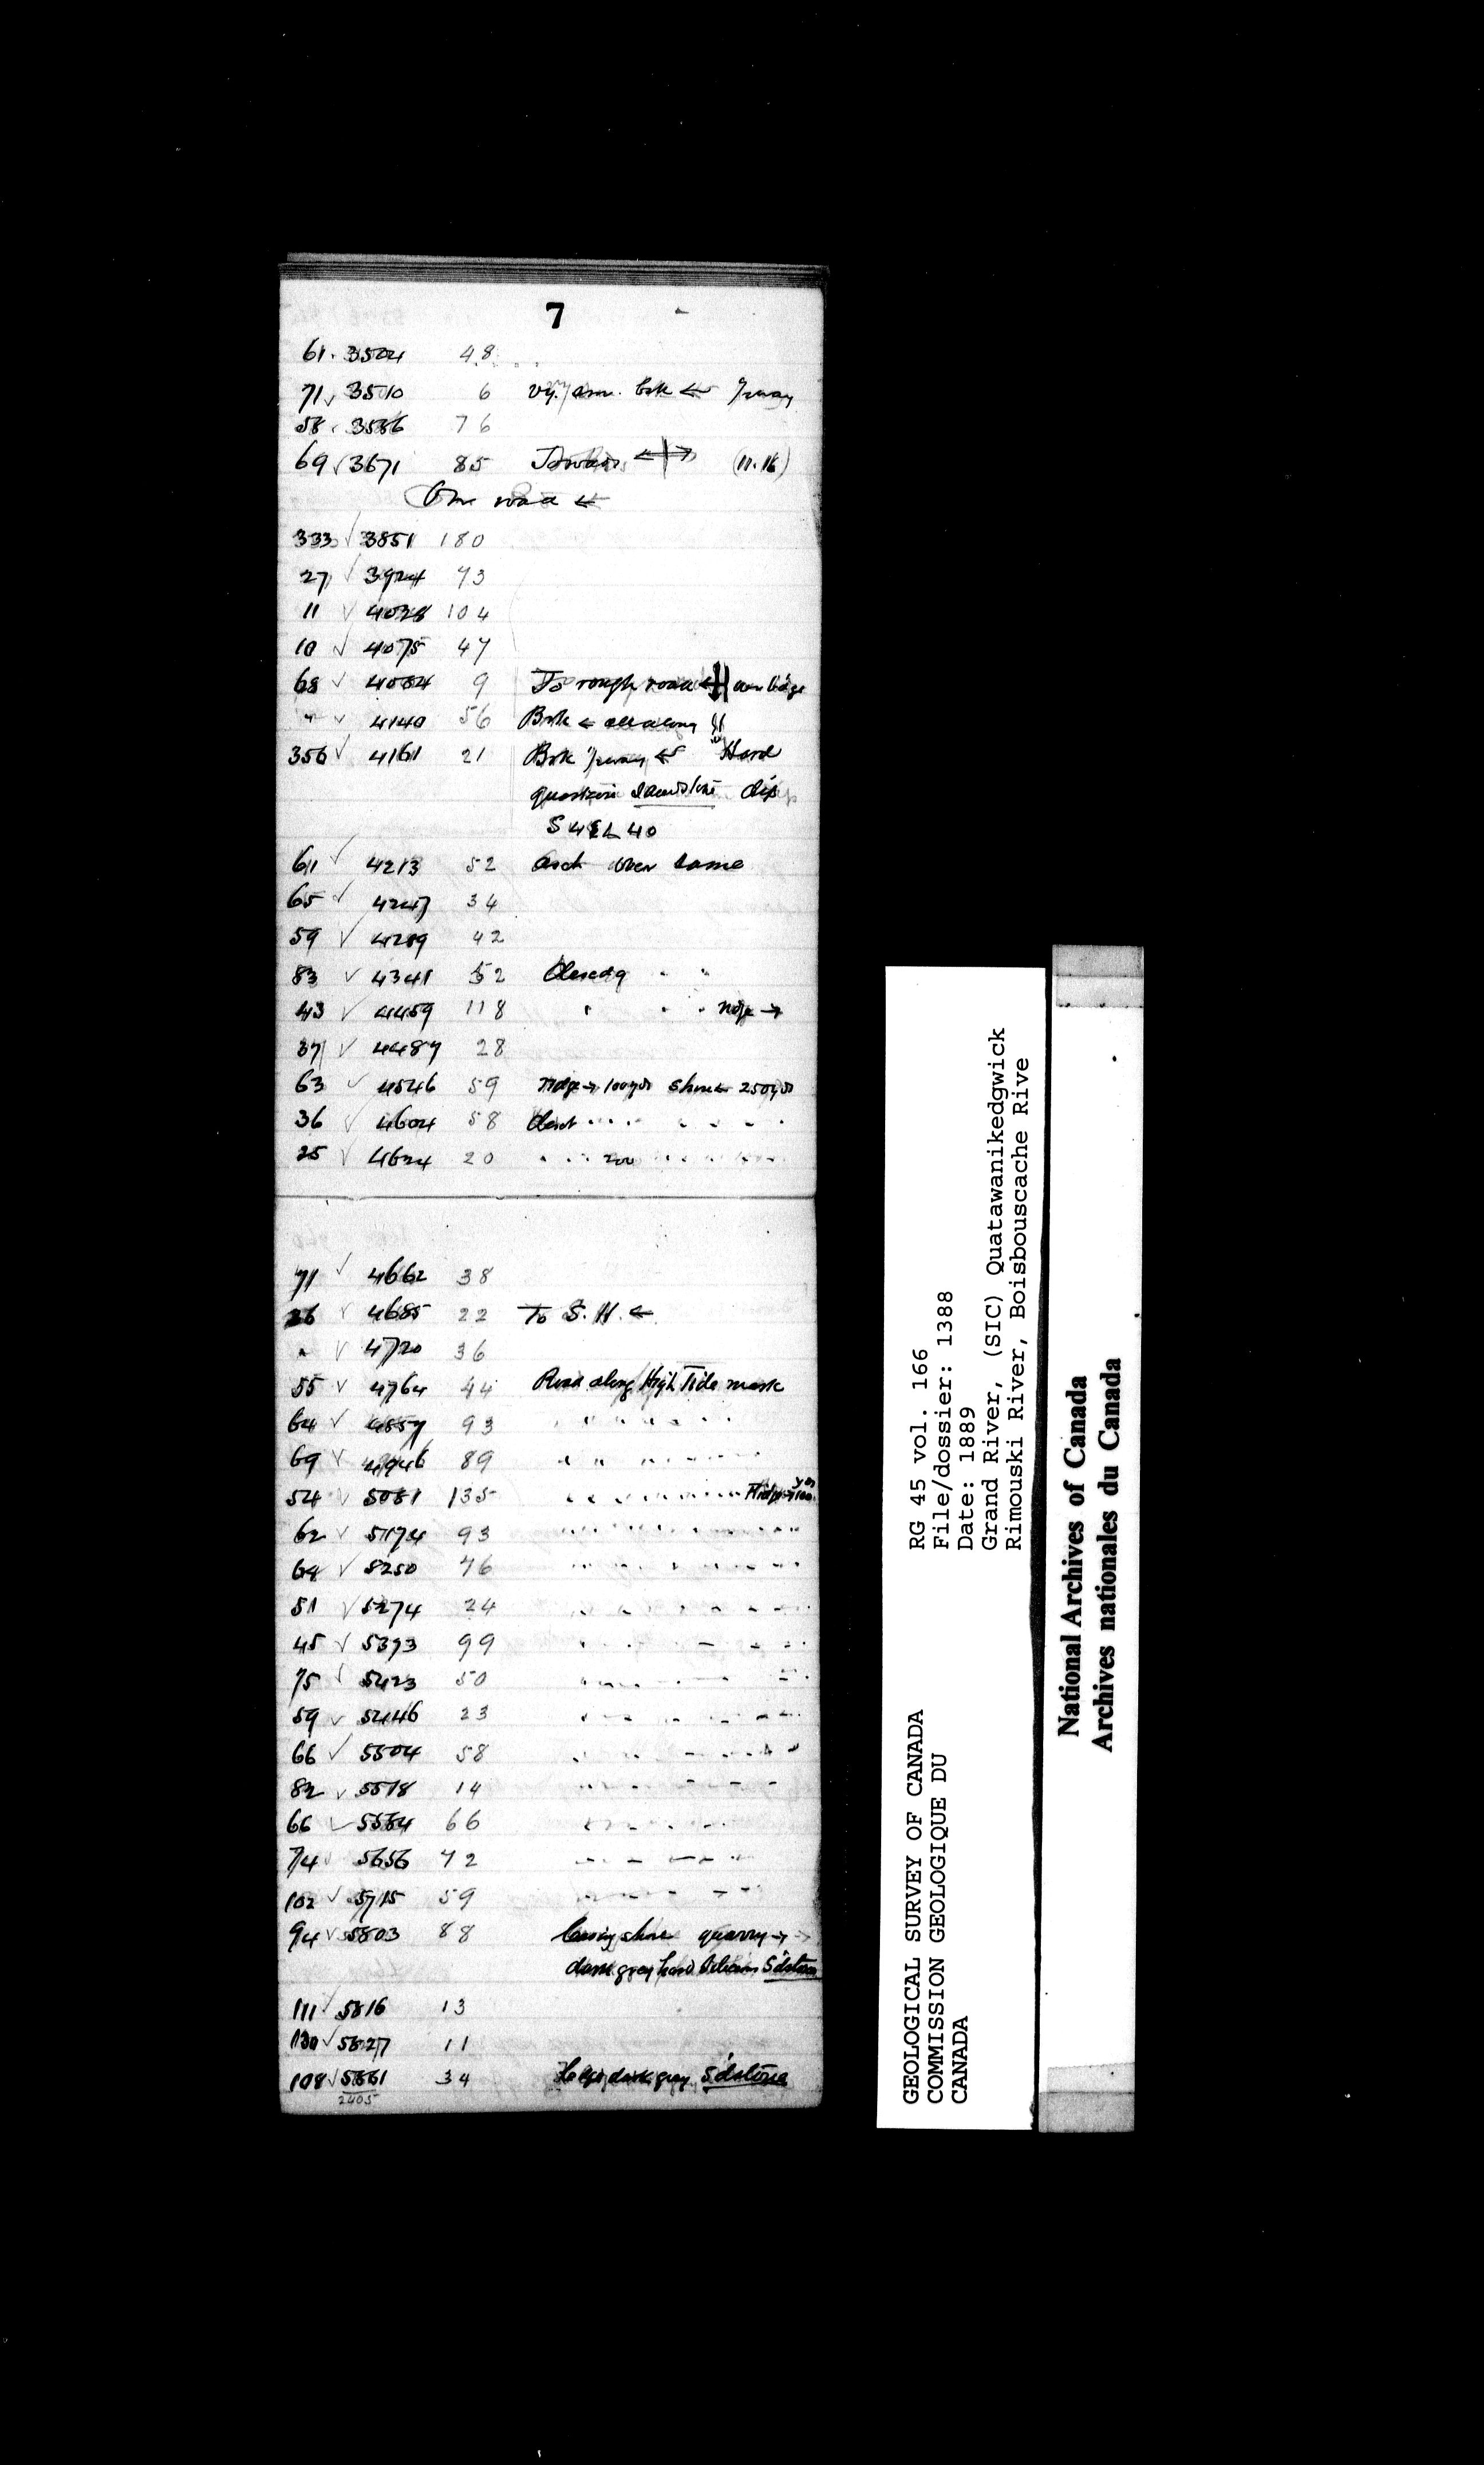 7
61 . 3504 48
71 ✓ 3510 6 vy. sm. brk ←
58 . 3586 76
69 ✓ 3671 85 ←|→ (11.16)
On road ←
333 ✓ 3851 180
27 ✓ 3924 73
11 ✓ 4028 104
10 ✓ 4075 47
68 ✓ 4084 9 To rough road
" ✓ 4140 56 Brk ← all along
356 ✓ 4161 21 Brk ← Hard
sandstone dip
S 4 E L 40
61 ✓ 4213 52 over same
65 ✓ 4247 34
59 ✓ 4289 42
83 ✓ 4341 52 " "
43 ✓ 4459 118 " " " ridge →
37 ✓ 4487 28
63 ✓ 4546 59 ridge → 100 yds shore ← 250 yds
36 ✓ 4604 58
25 ✓ 4624 20 200
71 ✓ 4662 38
26 ✓ 4685 22 To S. H. ←
" ✓ 4720 36
55 ✓ 4764 44 Road along High Tide mark
64 ✓ 4857 93 " " " " "
69 ✓ 4946 89 " " " " "
54 ✓ 5081 135 " " " " " Ridge → 100 yds
62 ✓ 5174 93 " " " " "
64 ✓ 5250 76 " " " " "
51 ✓ 5274 24 " " " " "
45 ✓ 5373 99 " " " " "
75 ✓ 5423 50 " " " " "
59 ✓ 5446 23 " " " " "
66 ✓ 5504 58 " " " " "
82 ✓ 5518 14 " " " " "
66 ✓ 5584 66 " " " " "
74 ✓ 5656 72 " " " " "
102 ✓ 5715 59 " " " " "
94 ✓ 5803 88 leaving shore quarry →
dark grey hard Sdstone
111 ✓ 5816 13
130 ✓ 5827 11
108 ✓ 5861 34 dark grey Sdstone
2405
GEOLOGICAL SURVEY OF CANADA
COMMISSION GEOLOGIQUE DU
CANADA
RG 45 vol. 166
File/dossier: 1388
Date: 1889
Grand River, (SIC) Quatawanikedgwick
Rimouski River, Boisbouscache Rive
National Archives of Canada
Archives nationales du Canada